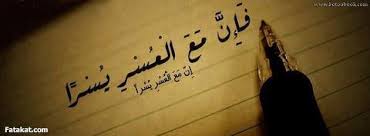 فَإِنَّ مَعَ الْعُسْرِ يُسْرًا
إِنَّ مَعَ الْعُسْرِ يُسْرًا
Fatakat.com